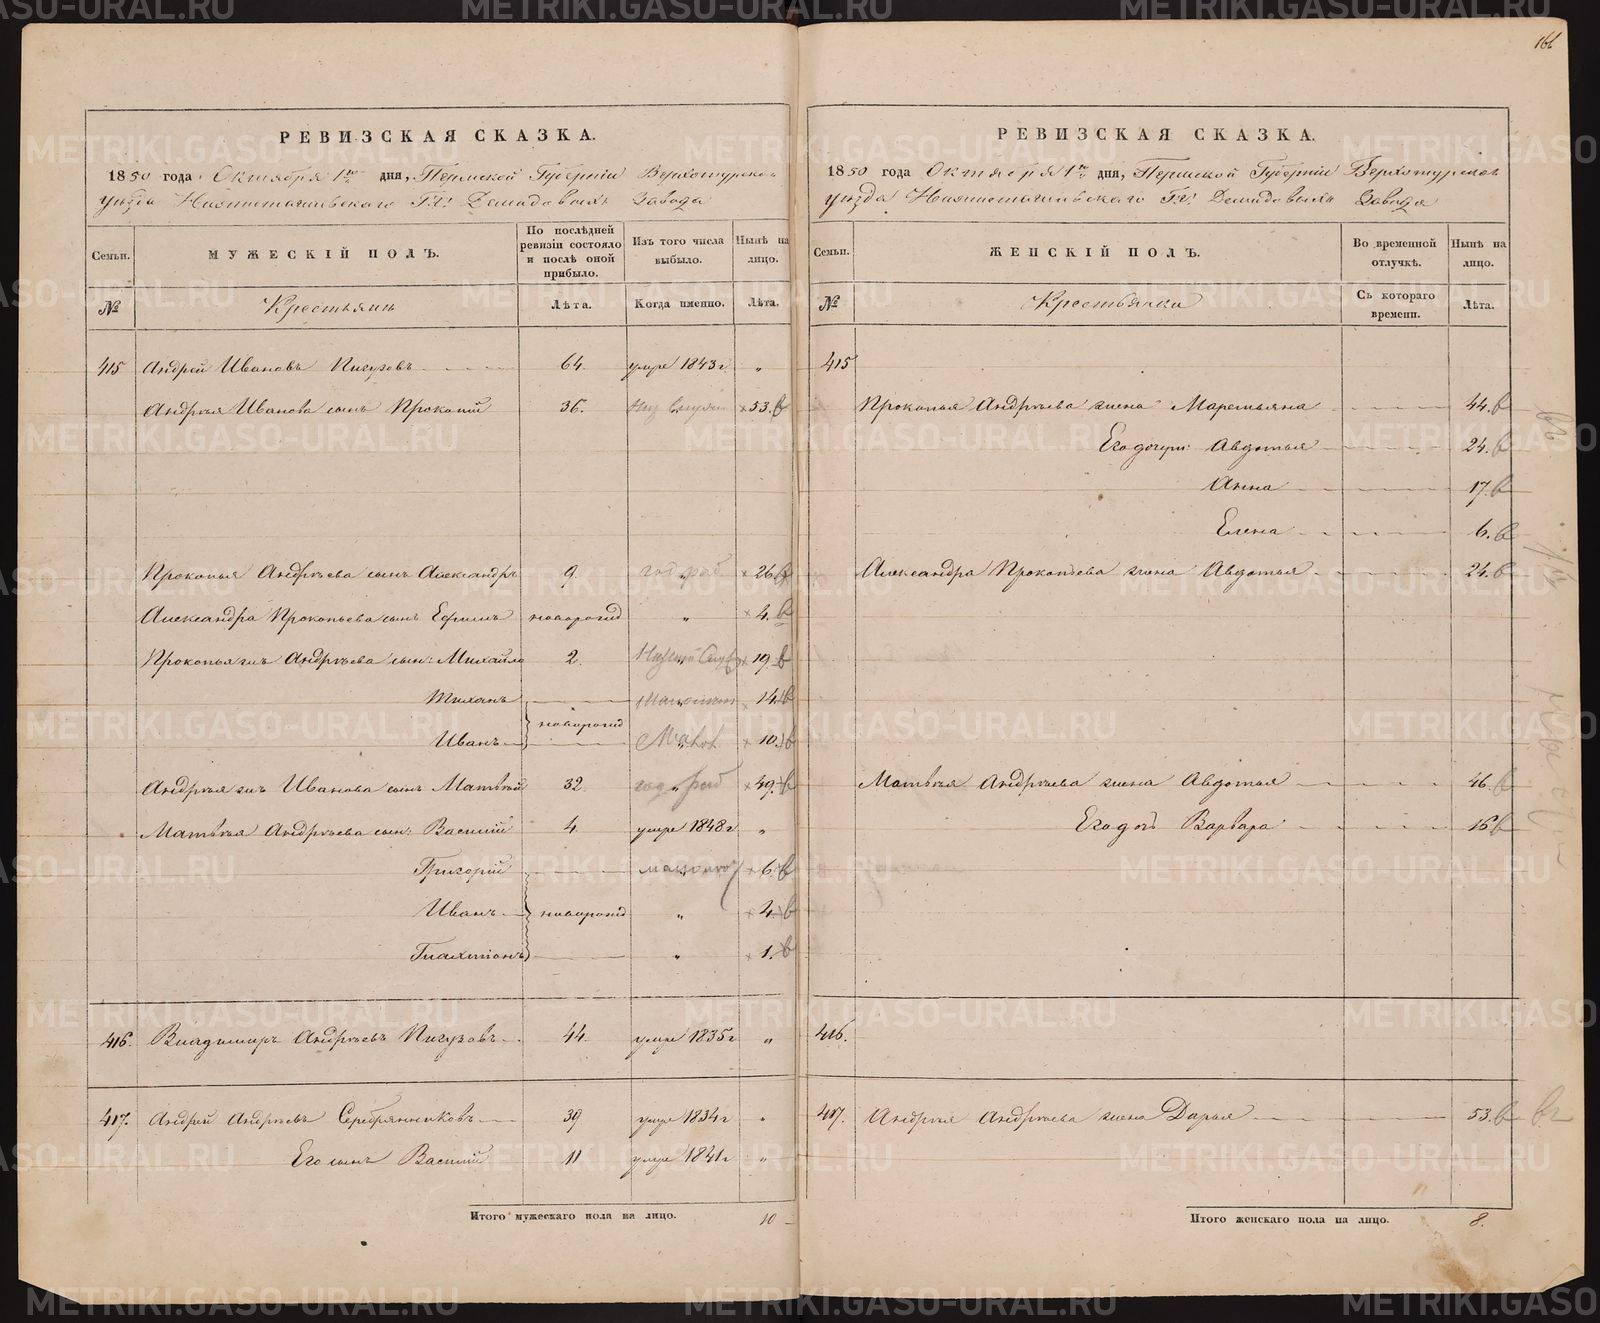 166
РЕВИЗСКАЯ СКАЗКА.
1850 года Октября 1го дня, Пермской Губерніи Верхотурскаго
уѣзда Нижнетагильскаго Гг: Демидовыхъ Завода
Семьи.
МУЖЕСКІЙ ПОЛЪ.
По послѣдней ревизіи состояло и послѣ оной прибыло.
Изъ того числа выбыло.
Нынѣ на лицо.
№
Крестьянъ
Лѣта.
Когда именно.
Лѣта.
415 Андрей Ивановъ Пигузовъ 64. умре 1843 г „
Андрея Иванова сынъ Прокопій 36. 53. в
Прокопья Андрѣева сынъ Александръ 9. год раб 26. в
Александра Прокопьева сынъ Ефимъ новорожд „ 4. в
Прокопья жъ Андрѣева сын: Михайло 2. 19 в
Тихонъ 14. в
новорожд
Иванъ 10. в
Андрея жъ Иванова сынъ Матвѣй 32. год раб 49. в
Матвѣя Андрѣева сын: Василій 4. умре 1848 г „
Григорій 6. в
Иванъ новорожд „ 4. в
Галахтіонъ „ 1. в
416. Владимиръ Андрѣевъ Пигузовъ 44. умре 1835 г „
417. Андрей Андрѣевъ Серебрянниковъ 39 умре 1834 г „
Его сынъ Василій 11 умре 1841 г „
Итого мужескаго пола на лицо. 10
РЕВИЗСКАЯ СКАЗКА.
1850 года Октября 1го дня, Пермской Губерніи Верхотурскаго
уѣзда Нижнетагильскаго Гг: Демидовыхъ Завода
Семьи.
ЖЕНСКІЙ ПОЛЪ.
Во временной отлучкѣ.
Нынѣ на лицо.
№
Крестьянки
Съ котораго времени.
Лѣта.
415
Прокопья Андрѣева жена Маремьяна 44. в
Его дочери: Авдотья 24. в
Анна 17. в
Елена 6. в
Александра Прокопьева жена Авдотья 24. в
Матвѣя Андрѣева жена Авдотья 46. в
Его дочь Варвара 16 в
416.
417. Андрея Андрѣева жена Дарья 53. в
Итого женскаго пола на лицо. 8.
METRIKI.GASO-URAL.RU